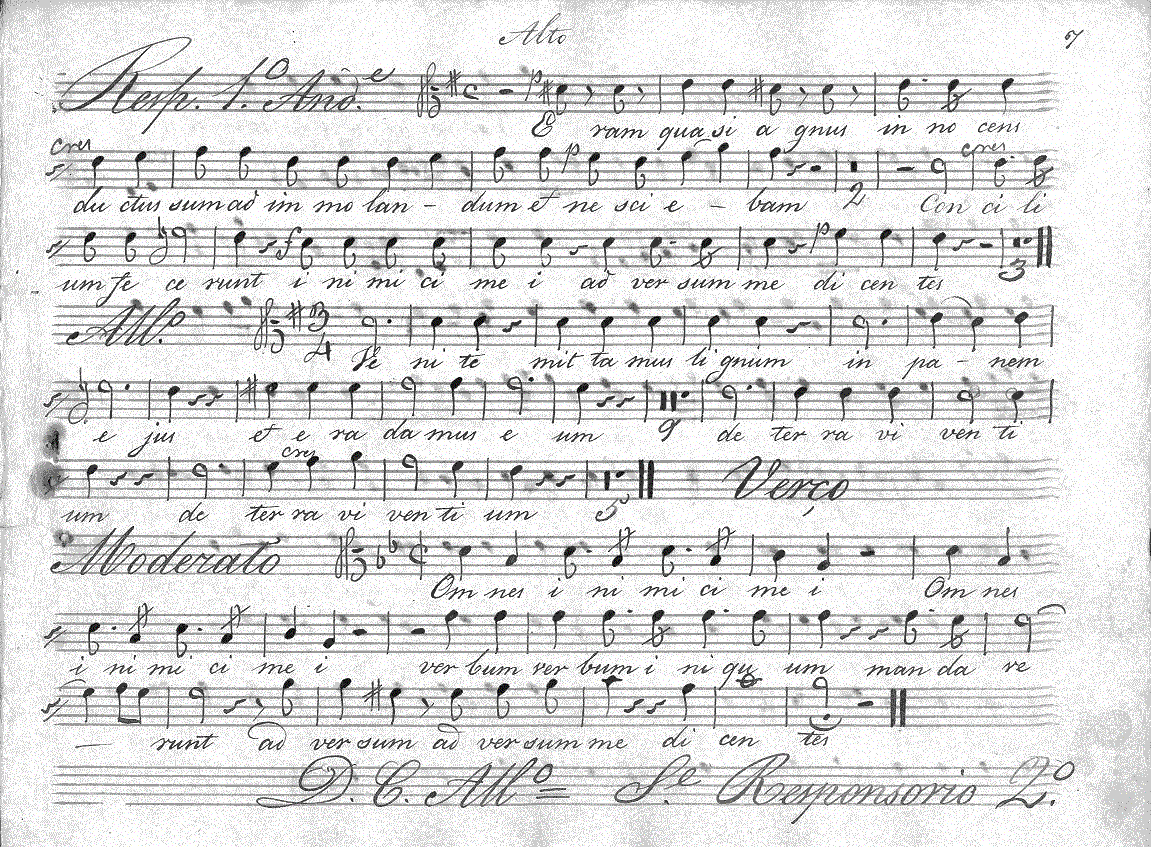 Alto 7
Resp. 1.º And.e
E ram qua si a gnus in no cens
cres
cres
du ctus sum ad im mo lan - dum et ne sci e - bam 2 Con ci li
um fe ce runt i ni mi ci me i ad ver sum me di cen tes 3
All.º 3 4
Ve ni te mit ta mus li gnum in pa - nem
e jus et e ra da mus e um 9 de ter ra vi ven ti
cres
um de ter ra vi ven ti um 5 Verço
Moderato
Om nes i ni mi ci me i Om nes
i ni mi ci me i ver bum ver bum i ni qu um man da ve
— runt ad ver sum ad ver sum me di cen tes
D. C. Allº S.e Responsorio 2.º